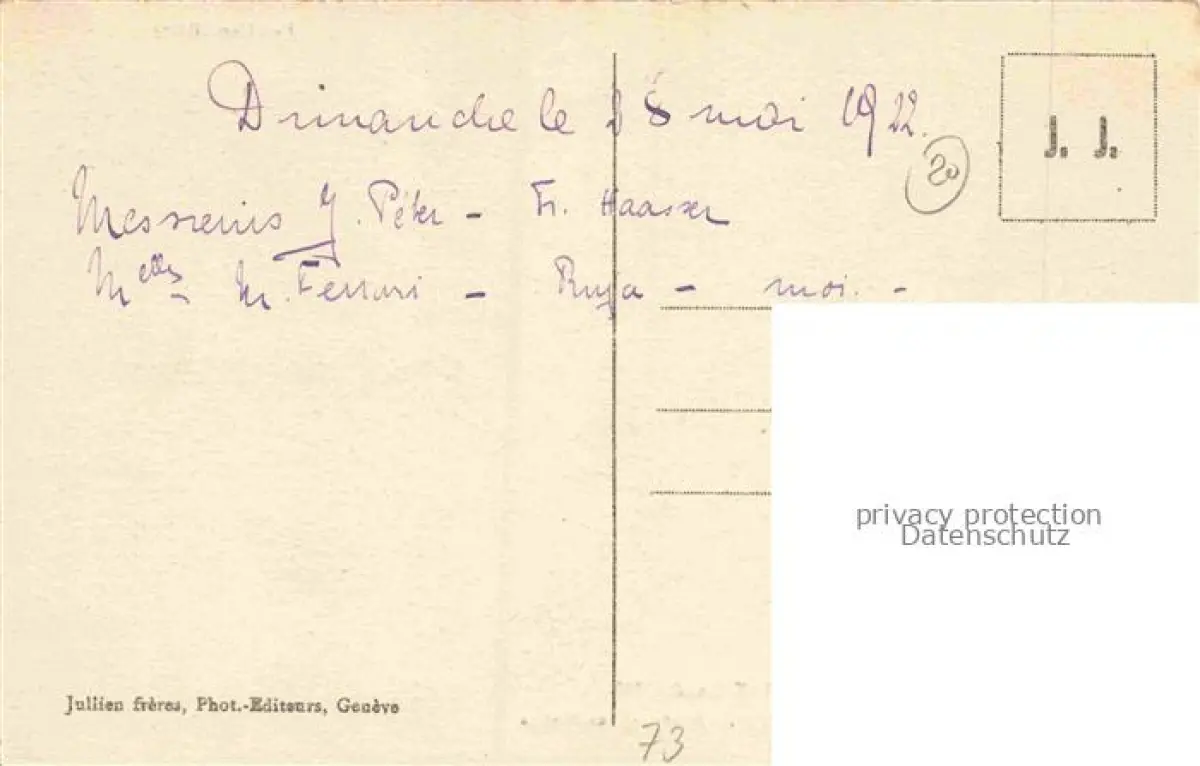 Dimanche le 28 mai 1922.
20
J. J.
Messieurs J. Péter - Fr. Haasser
Melles - M. Ferrari - - moi. -
privacy protection
Datenschutz
Jullien frères, Phot.-Editeurs, Genève
73